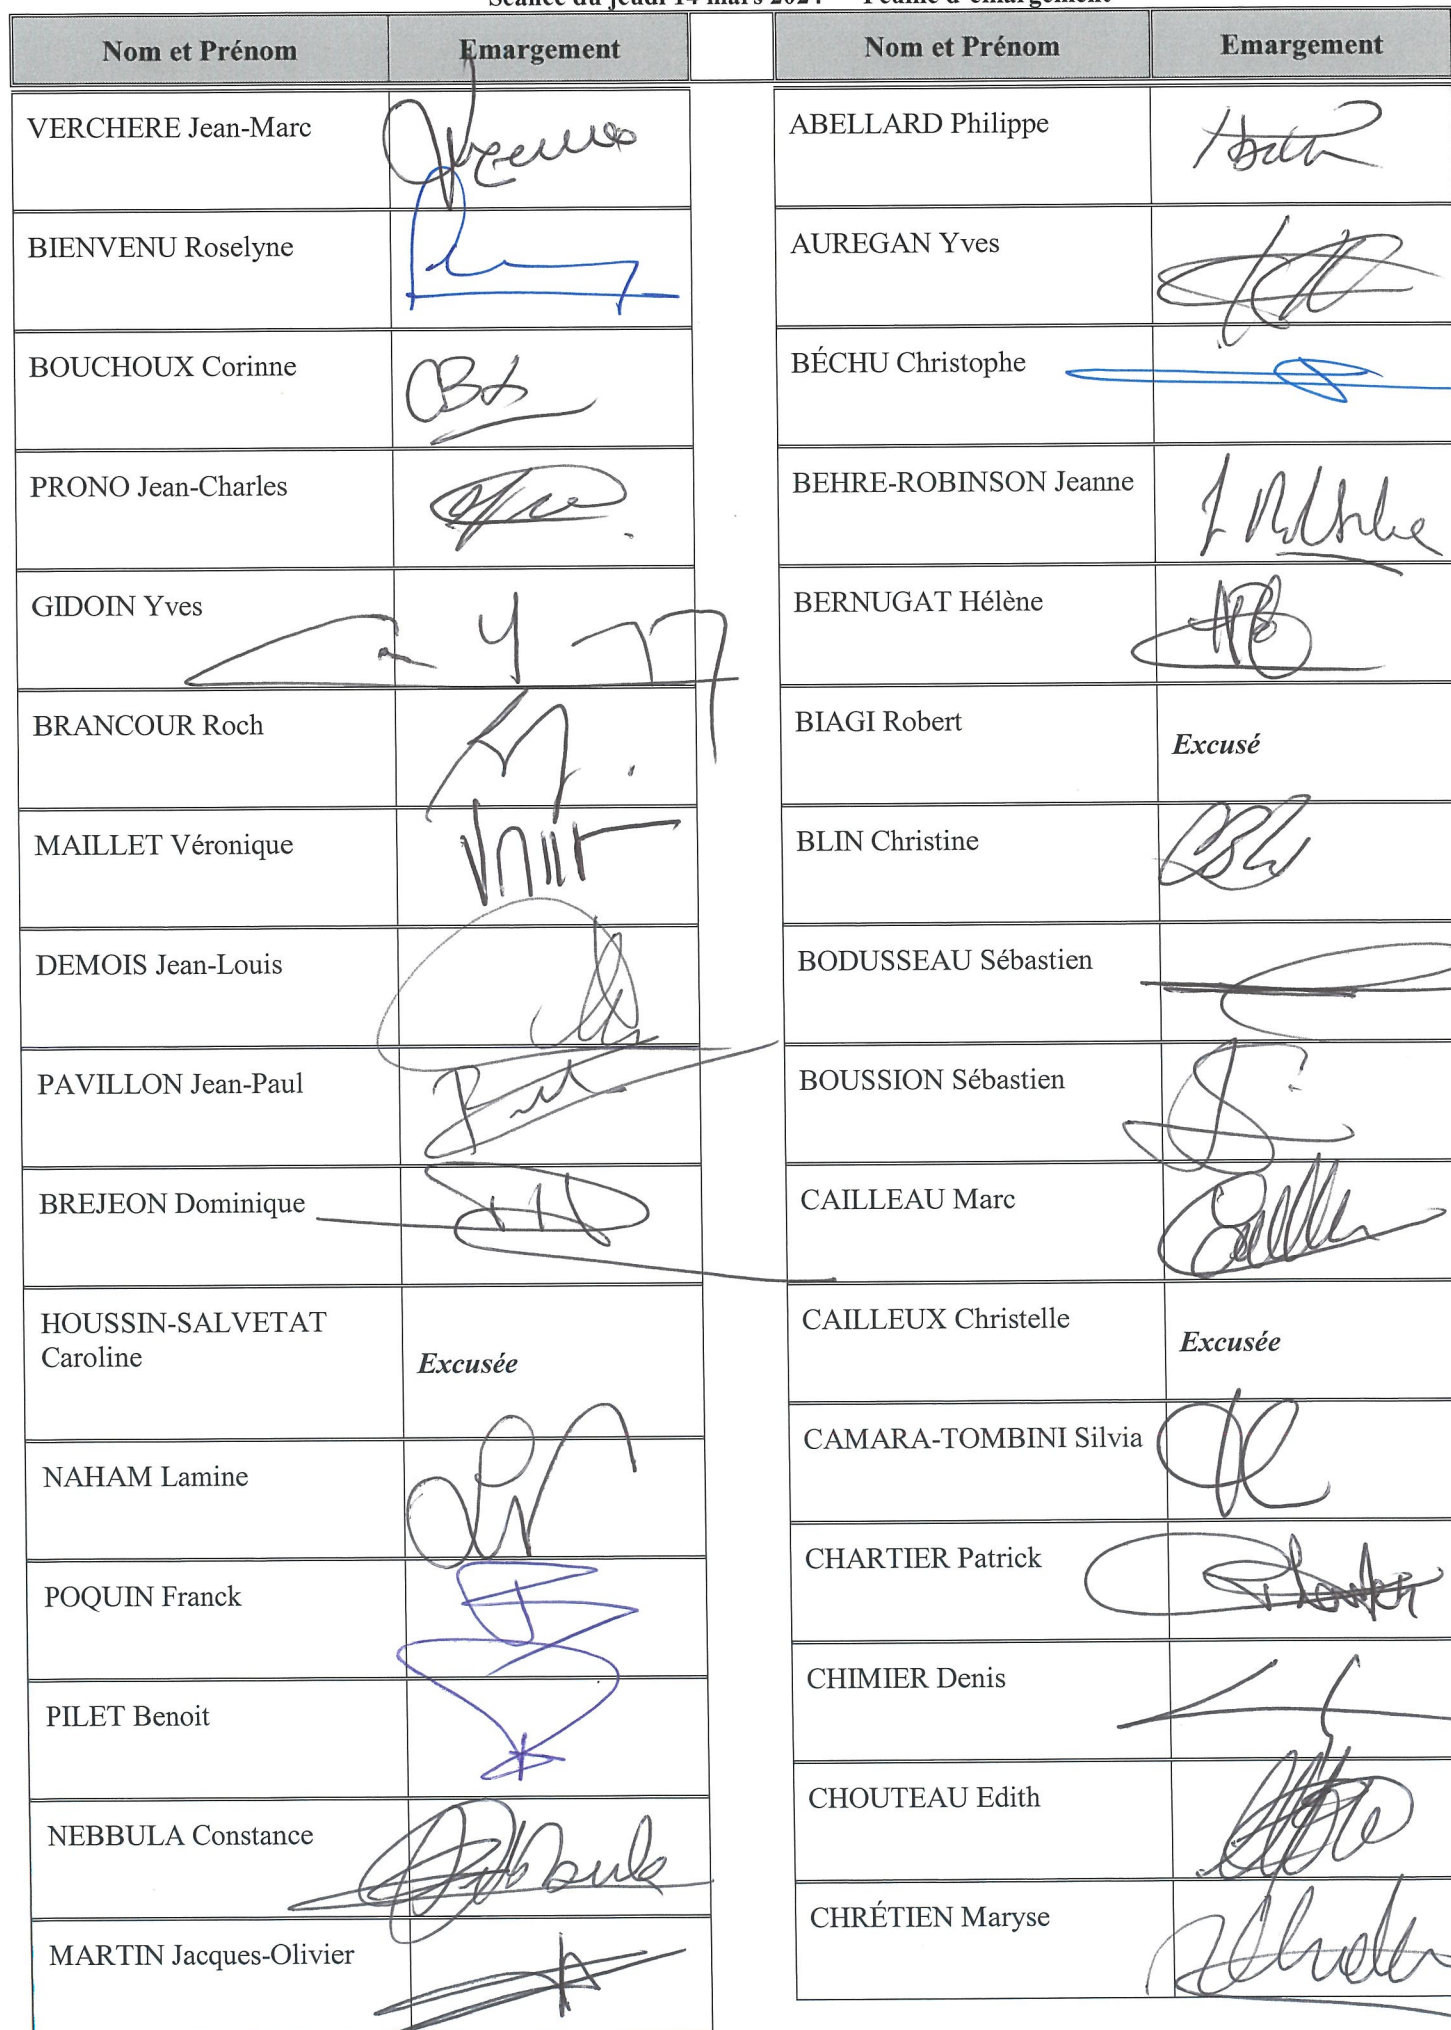 Séance du jeudi 14 mars 2024 - Feuille d'émargement
Nom et Prénom Emargement
VERCHERE Jean-Marc
BIENVENU Roselyne
BOUCHOUX Corinne
PRONO Jean-Charles
GIDOIN Yves
BRANCOUR Roch
MAILLET Véronique
DEMOIS Jean-Louis
PAVILLON Jean-Paul
BREJEON Dominique
HOUSSIN-SALVETAT
Caroline
Excusée
NAHAM Lamine
POQUIN Franck
PILET Benoit
NEBBULA Constance
MARTIN Jacques-Olivier
Nom et Prénom Emargement
ABELLARD Philippe
AUREGAN Yves
BÉCHU Christophe
BEHRE-ROBINSON Jeanne
BERNUGAT Hélène
BIAGI Robert
Excusé
BLIN Christine
BODUSSEAU Sébastien
BOUSSION Sébastien
CAILLEAU Marc
CAILLEUX Christelle
Excusée
CAMARA-TOMBINI Silvia
CHARTIER Patrick
CHIMIER Denis
CHOUTEAU Edith
CHRÉTIEN Maryse